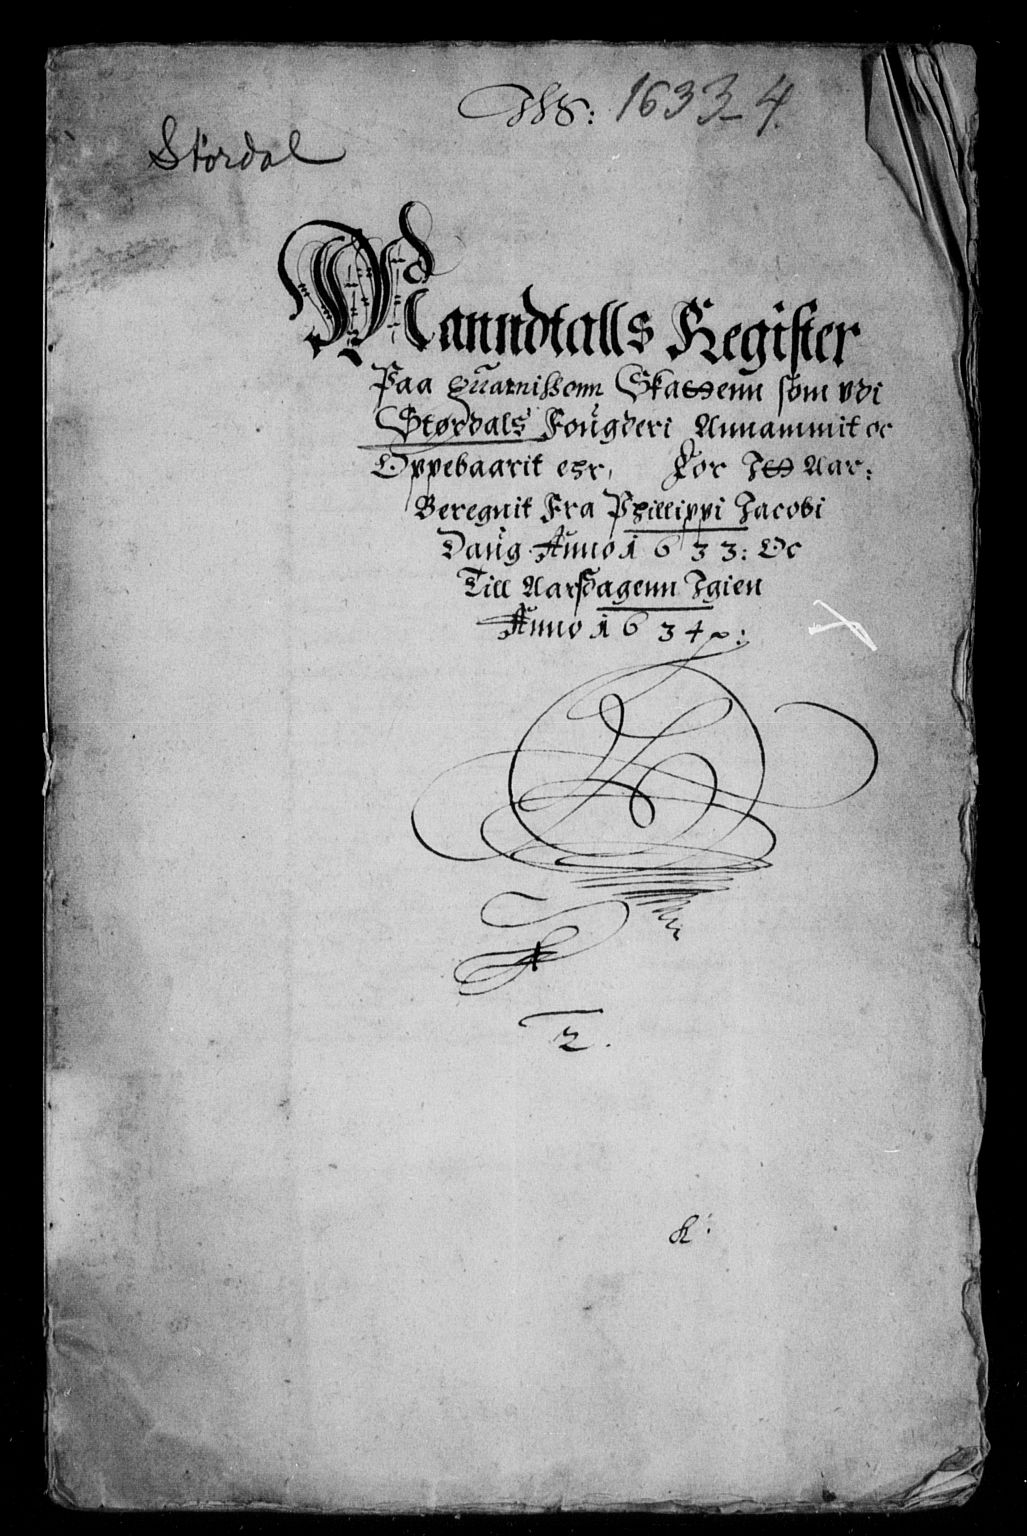 1633-4.
Stördal
Manndtalls Register
Paa Quarnisßenn Skattenn som vdi
Størdals Fougderi Annammit oc
Oppebaarit ehr, For Itt Aar:
Beregnit Fra Phillippi Jacobi
Daug Anno 1633: Oc
Till Aarsdagenn Igien
Anno 1634
2.